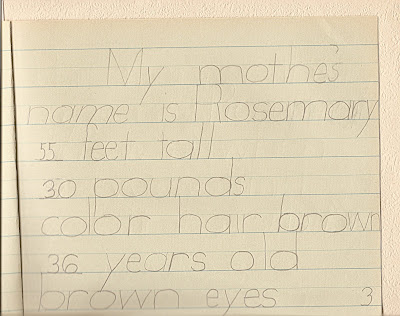 My mothe's
name is Rosemary
55 feet tall
30 pounds
color hair brown
36 years old
brown eyes 3